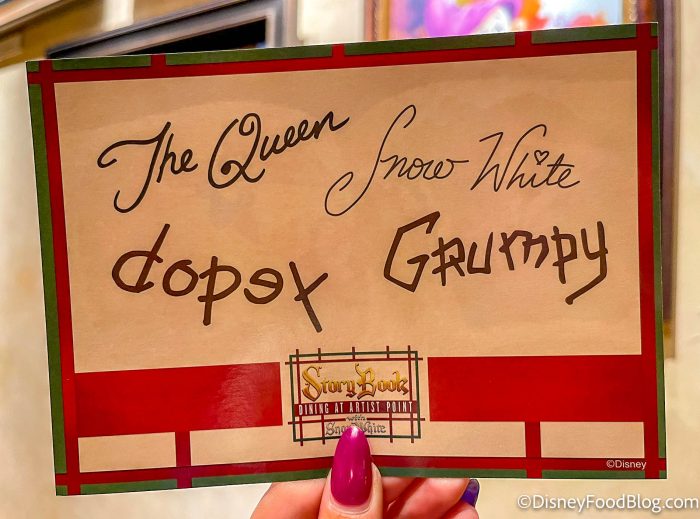 The Queen Snow White
dopey Grumpy
Story Book
DINING AT ARTIST POINT
with
Snow White
©Disney
©DisneyFoodBlog.com